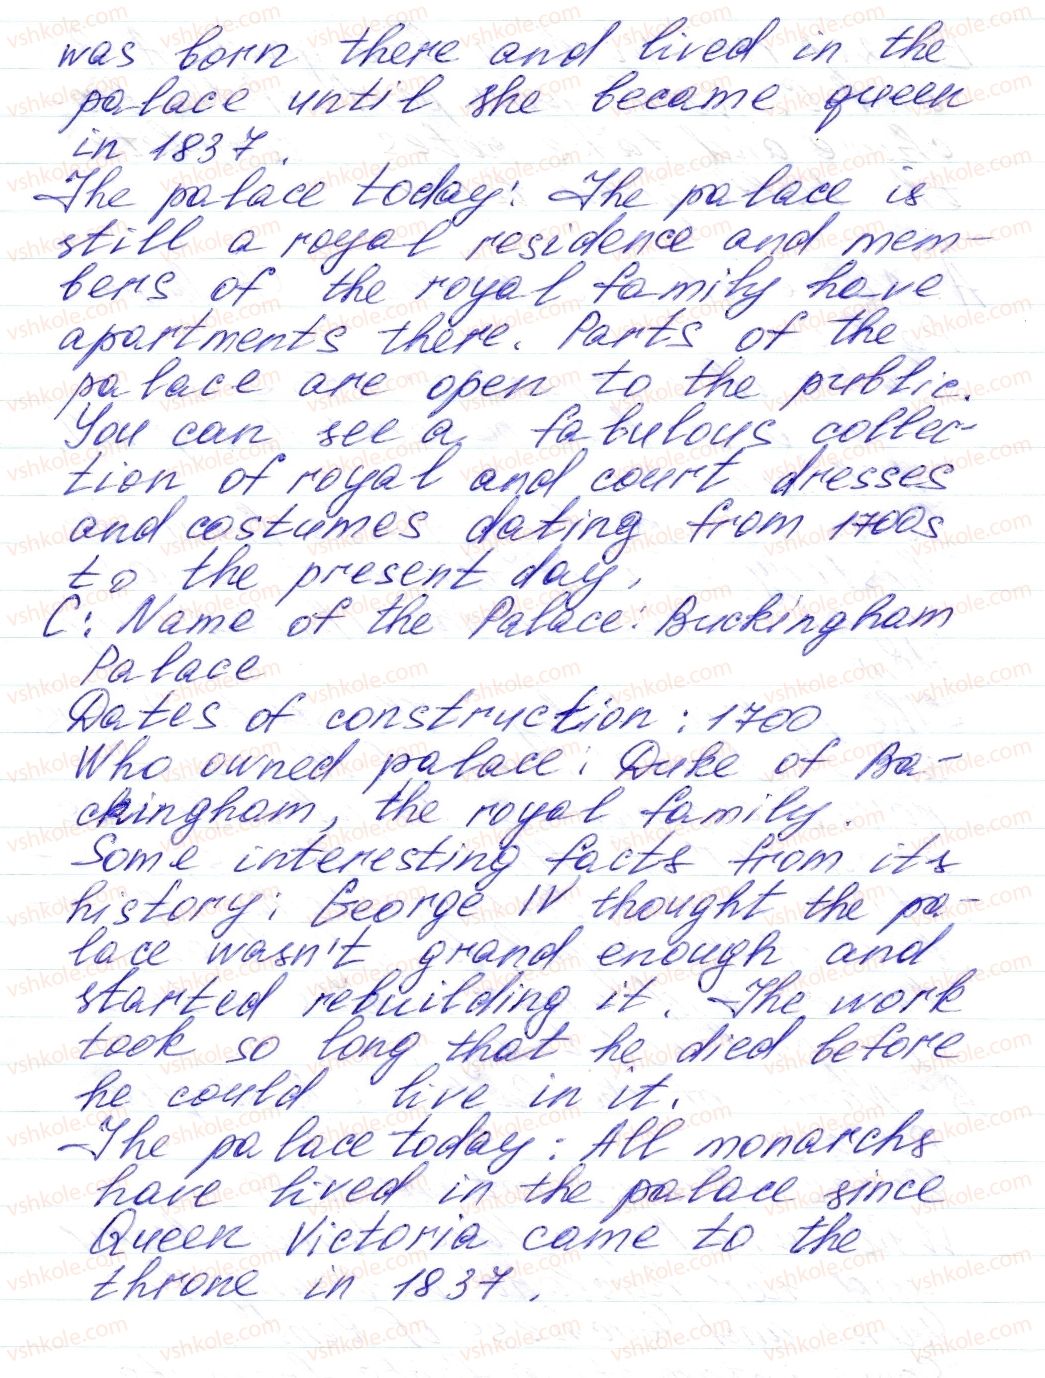 was born there and lived in the
palace until she became queen
in 1837.
The palace today: The palace is
still a royal residence and mem-
bers of the royal family have
apartments there. Parts of the
palace are open to the public.
You can see a fabulous collec-
tion of royal and court dresses
and costumes dating from 1700s
to the present day.
C: Name of the Palace: Buckingham
Palace
Dates of construction: 1700
Who owned palace: Duke of Ba-
ckingham, the royal family.
Some interesting facts from its
history: George IV thought the pa-
lace wasn't grand enough and
started rebuilding it. The work
took so long that he died before
he could live in it.
The palace today: All monarchs
have lived in the palace since
Queen Victoria came to the
throne in 1837.
vshkole.com